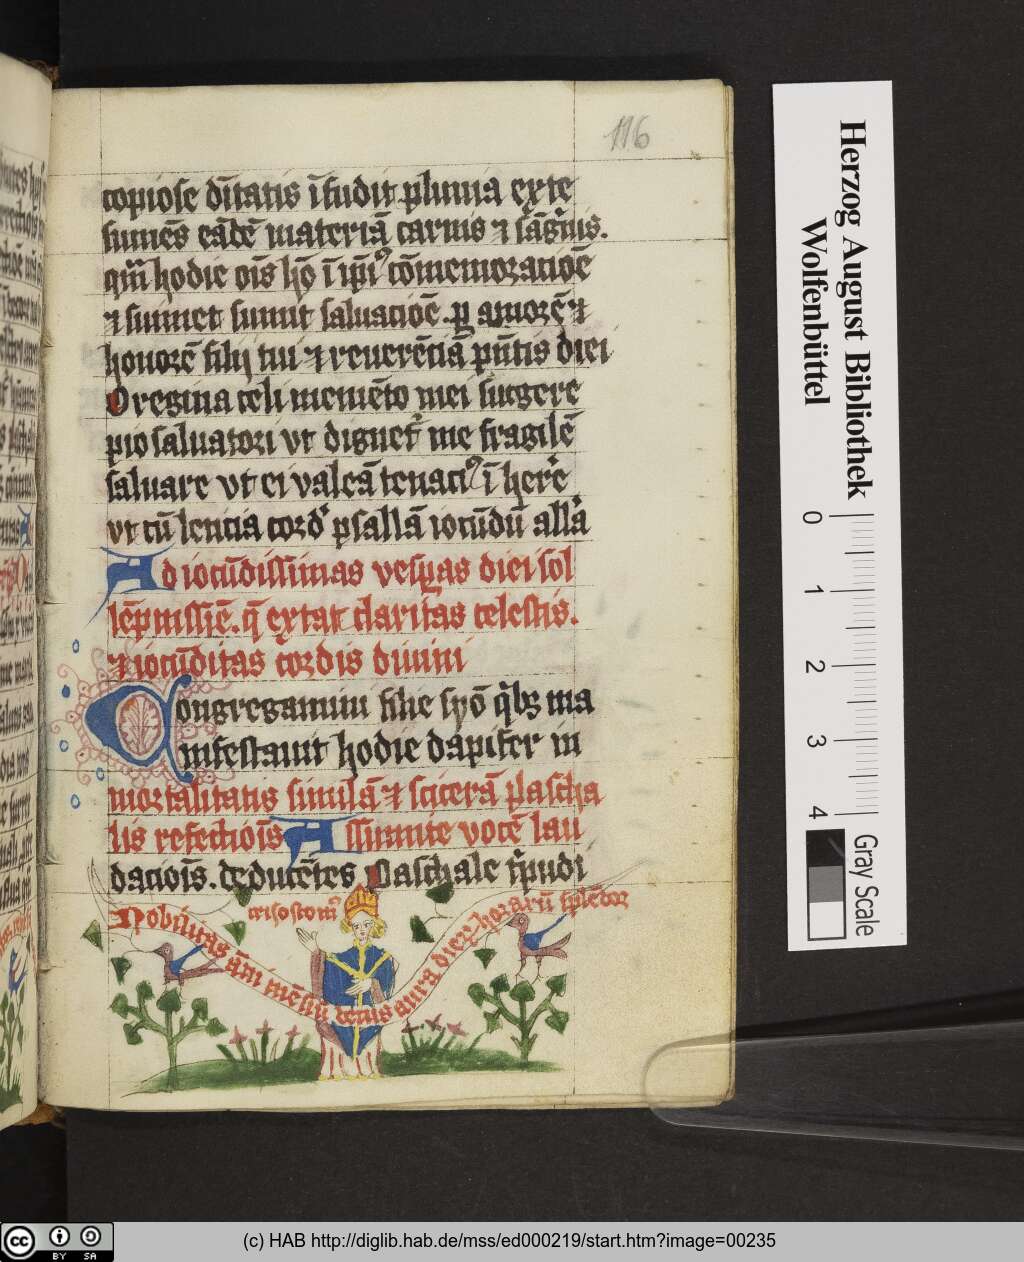 116
copiose dītatis īfudit pluuia exte
sumēs eādē materiā carnis ⁊ sāgnīs.
qm̄ hodie oīs hō ī ipi⁹ cōmemoracioē
⁊ sumet sumit saluacioē. ꝑ amorē ⁊
honorē filij tui ⁊ reuerēciā p̄ntis diei
O regina celi memēto mei sugere
pio saluatori vt dignet᷑ me fragilē
saluare vt ei valeā tenaci⁹ ī herere
vt cū leticia cord̕ psallā iocūdū alla
Ad iocūdissimas vesꝑas diei sol
lēpnissīe. q̄ extat claritas celestis.
⁊ iocūditas cordis diuini
Congregamini filie syō qībꝫ ma
nifestauit hodie dapifer in
mortalitatis similā ⁊ sicerā pascha
lis refectiois Assumite vocē lau
dacioīs. deducētes Paschale tripudi
crisostom⁹
Nobilitas āmi mēsiū venis aura dierꝝ horarū splēdor
Herzog August Bibliothek
Wolfenbüttel
0 1 2 3 4
Gray Scale
cc BY SA
(c) HAB http://diglib.hab.de/mss/ed000219/start.htm?image=00235